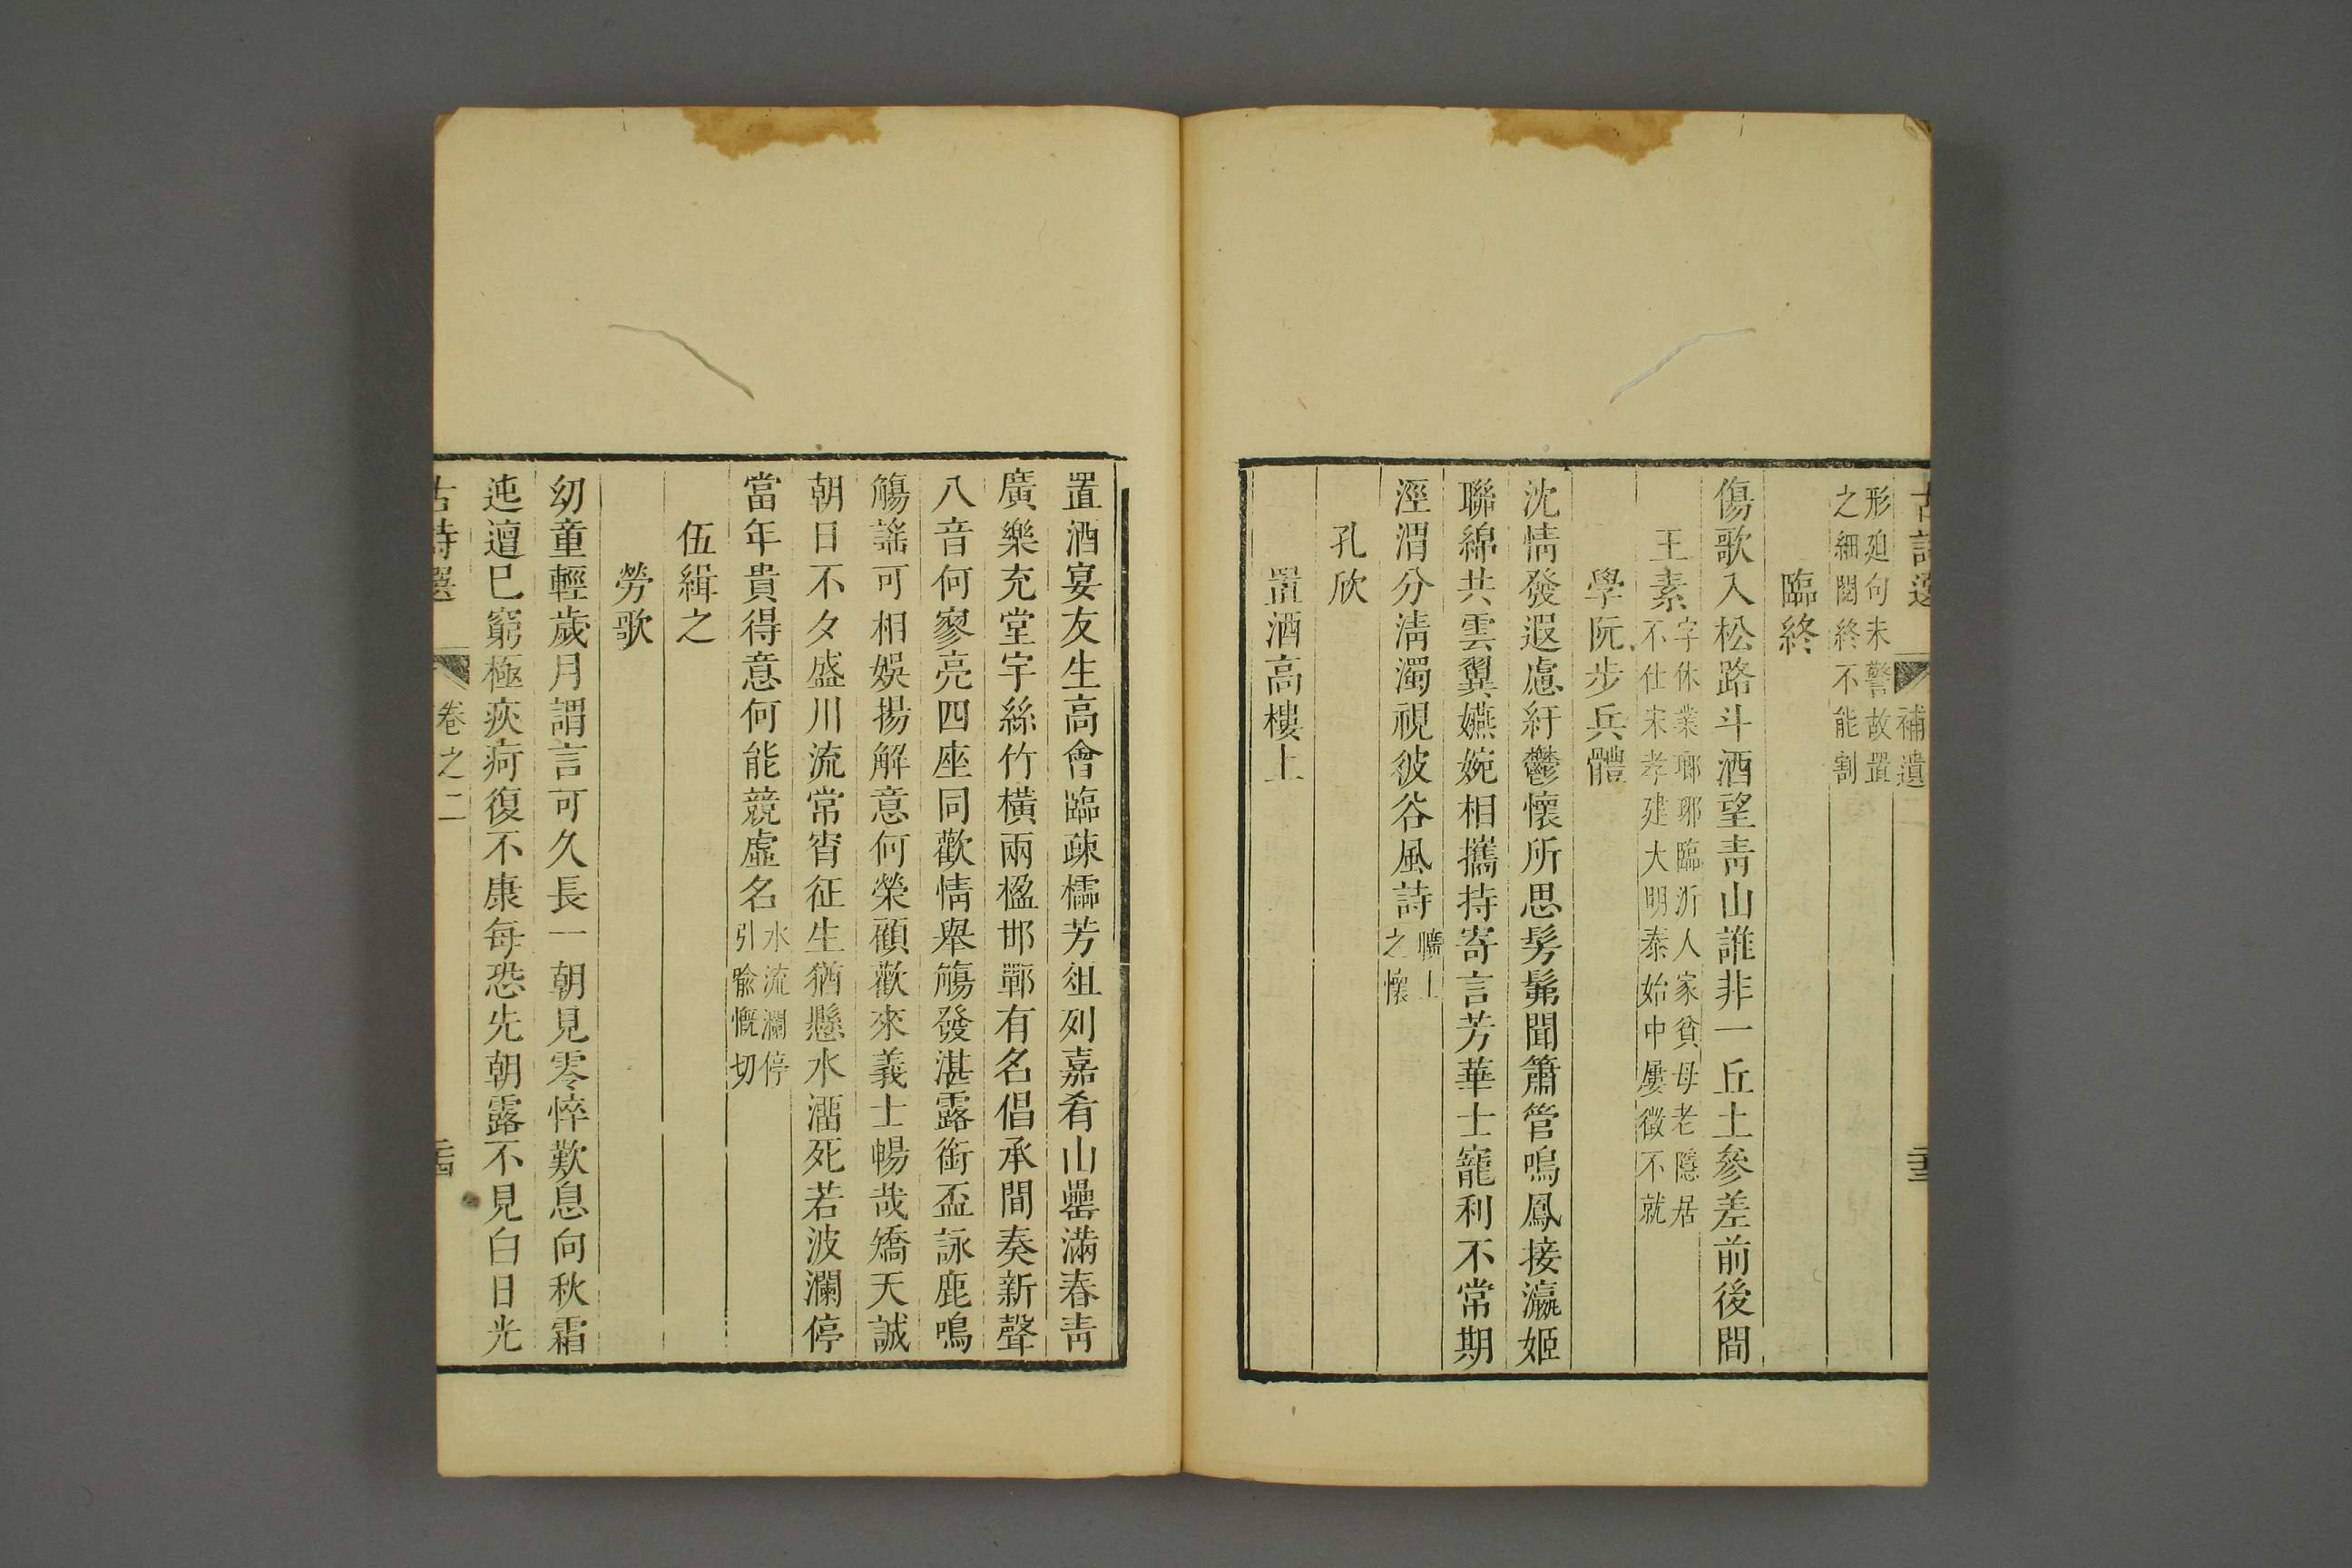 補遺
形廹句未警故置
之細閱終不能割
臨終
傷歌入松路斗酒望靑山誰非一丘土參差前後間
王素字休業瑯琊臨沂人家貧母老隱居
不仕宋孝建大明泰始中屢徵不就
學阮步兵體
沈情發遐慮紆鬱懷所思髣髴聞簫管鳴鳳接瀛姬
聯綿共雲翼嬿婉相攜持寄言芳華士寵利不常期
涇渭分淸濁視彼谷風詩曠士
之懷
孔欣
置酒高樓上
置酒宴友生高會臨疎櫺芳俎列嘉肴山罍滿春靑
廣樂充堂宇絲竹橫兩楹邯鄲有名倡承間奏新聲
八音何寥亮四座同歡情舉觴發湛露銜盃詠鹿鳴
觴謠可相娛揚解意何榮顧歡來義士暢哉矯天誠
朝日不夕盛川流常宵征生猶懸水溜死若波瀾停
當年貴得意何能競虛名水流瀾停
引喻慨切
伍緝之
勞歌
幼童輕歲月謂言可久長一朝見零悴歎息向秋霜
迍邅巳窮極疢疴復不康每恐先朝露不見白日光
古詩選 卷之二